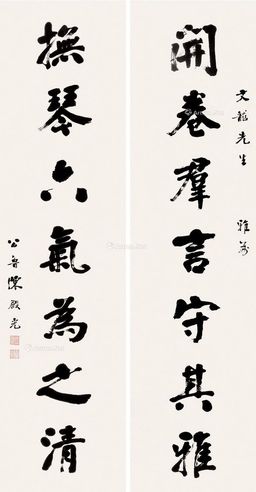 開卷羣言守其雅
文龍先生　雅屬
撫琴六氣為之清
公魯陳啟光